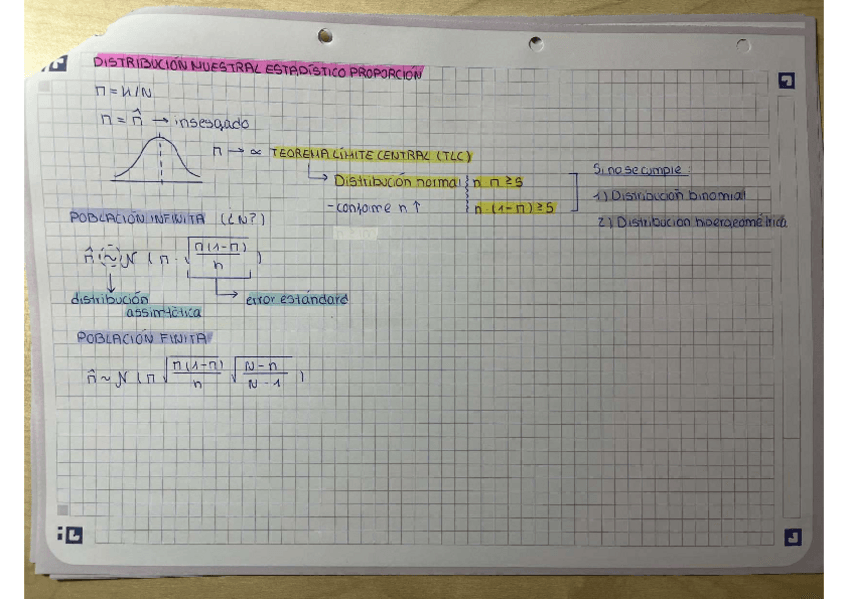 DISTRIBUCIÓN MUESTRAL ESTADÍSTICO PROPORCIÓN
Π = X/N
Π = Π̂ → insesgado
n → ∝ TEOREMA LÍMITE CENTRAL (TLC)
↳ Distribución normal { n Π ≥ 5
- confome n ↑ n · (1-Π) ≥ 5
Si no se cumple:
1) Distribución binomial
2) Distribución hipergeométrica
POBLACIÓN INFINITA (¿N?)
Π̂ ~ N ( Π · √Π(1-Π)/n )
distribución
assimtòtica
error estándard
POBLACIÓN FINITA
Π̂ ~ N ( Π √Π(1-Π)/n √N-n/N-1 )